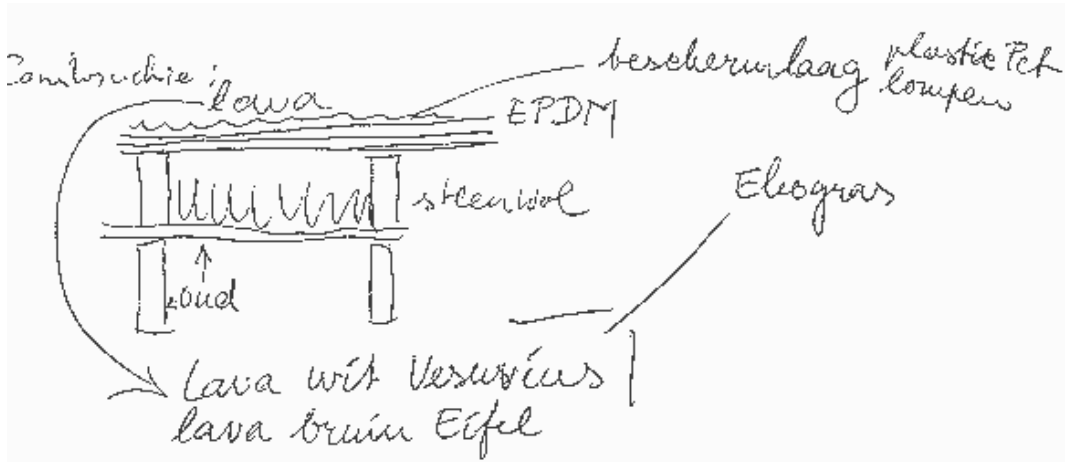 lava
beschermlaag plastic Pet
lompen
EPDM
steenwol
Ekogras
Lava wit Vesuvius
lava bruin Eifel